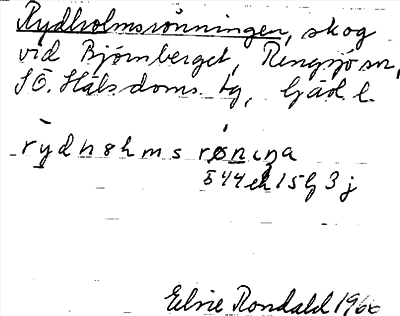 Rydholmsrönningen, skog
vid Björnberget, Rengsjö sn,
SÖ. Hälsdoms. tg, Gäd l.
rydhshms røniŋa
544 eh 15 g 3 j
Elvie Rondald 1966